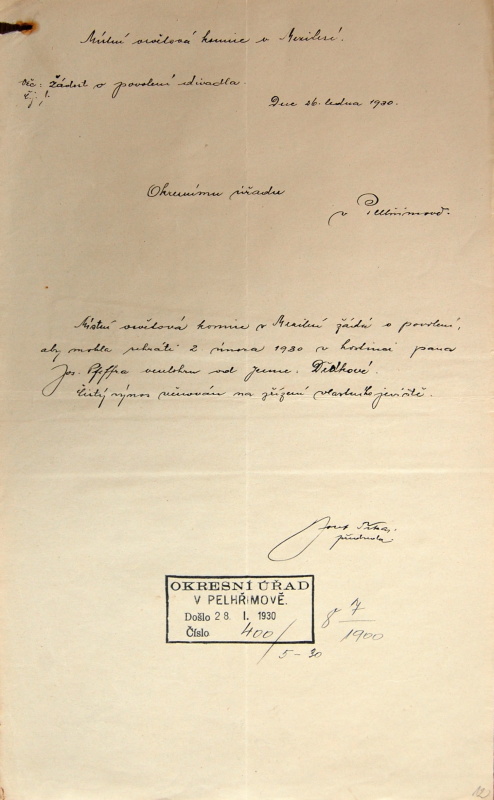 Místní osvětová komise v Mezilesí.
Věc: Žádost o povolení divadla.
Čj. 1.
Dne 26. ledna 1930.
Okresnímu úřadu
v Pelhřimově.
Místní osvětová komise v Mezilesí žádá o povolení,
aby mohla sehráti 2 února 1930 v hostinci pana
Jos. Pfeffra veselohru od Jenne. Dědkové.
Čistý výnos věnován na zřízení vlastního jeviště.
Josef
předseda
OKRESNÍ ÚŘAD
V PELHŘIMOVĚ.
Došlo 28. I. 1930
Číslo 400/
5-30
8 7
1900
12